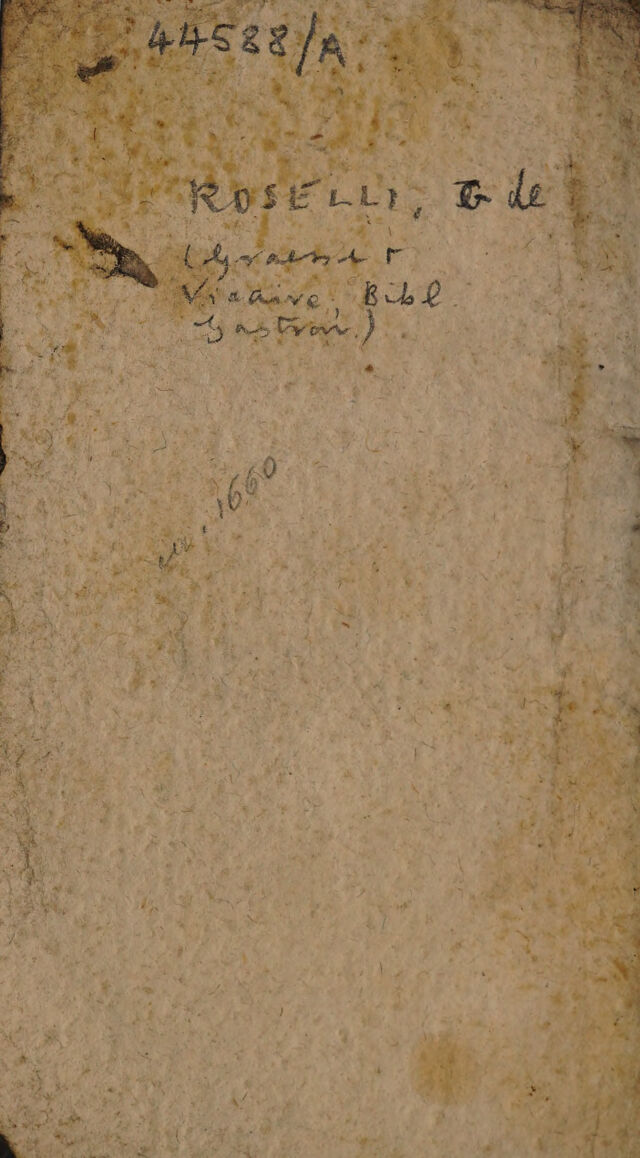 44588/A
ROSELLI, G de
(Graesse +
Vicaire, Bibl
Gastron.)
1660